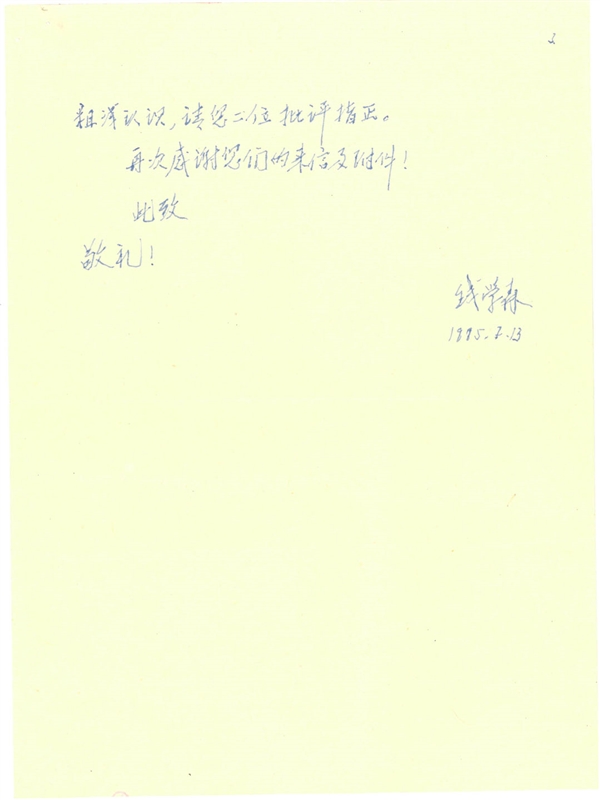 2
粗浅认识，请您二位批评指正。
再次感谢您们的来信及附件！
此致
敬礼！
钱学森
1995.7.13